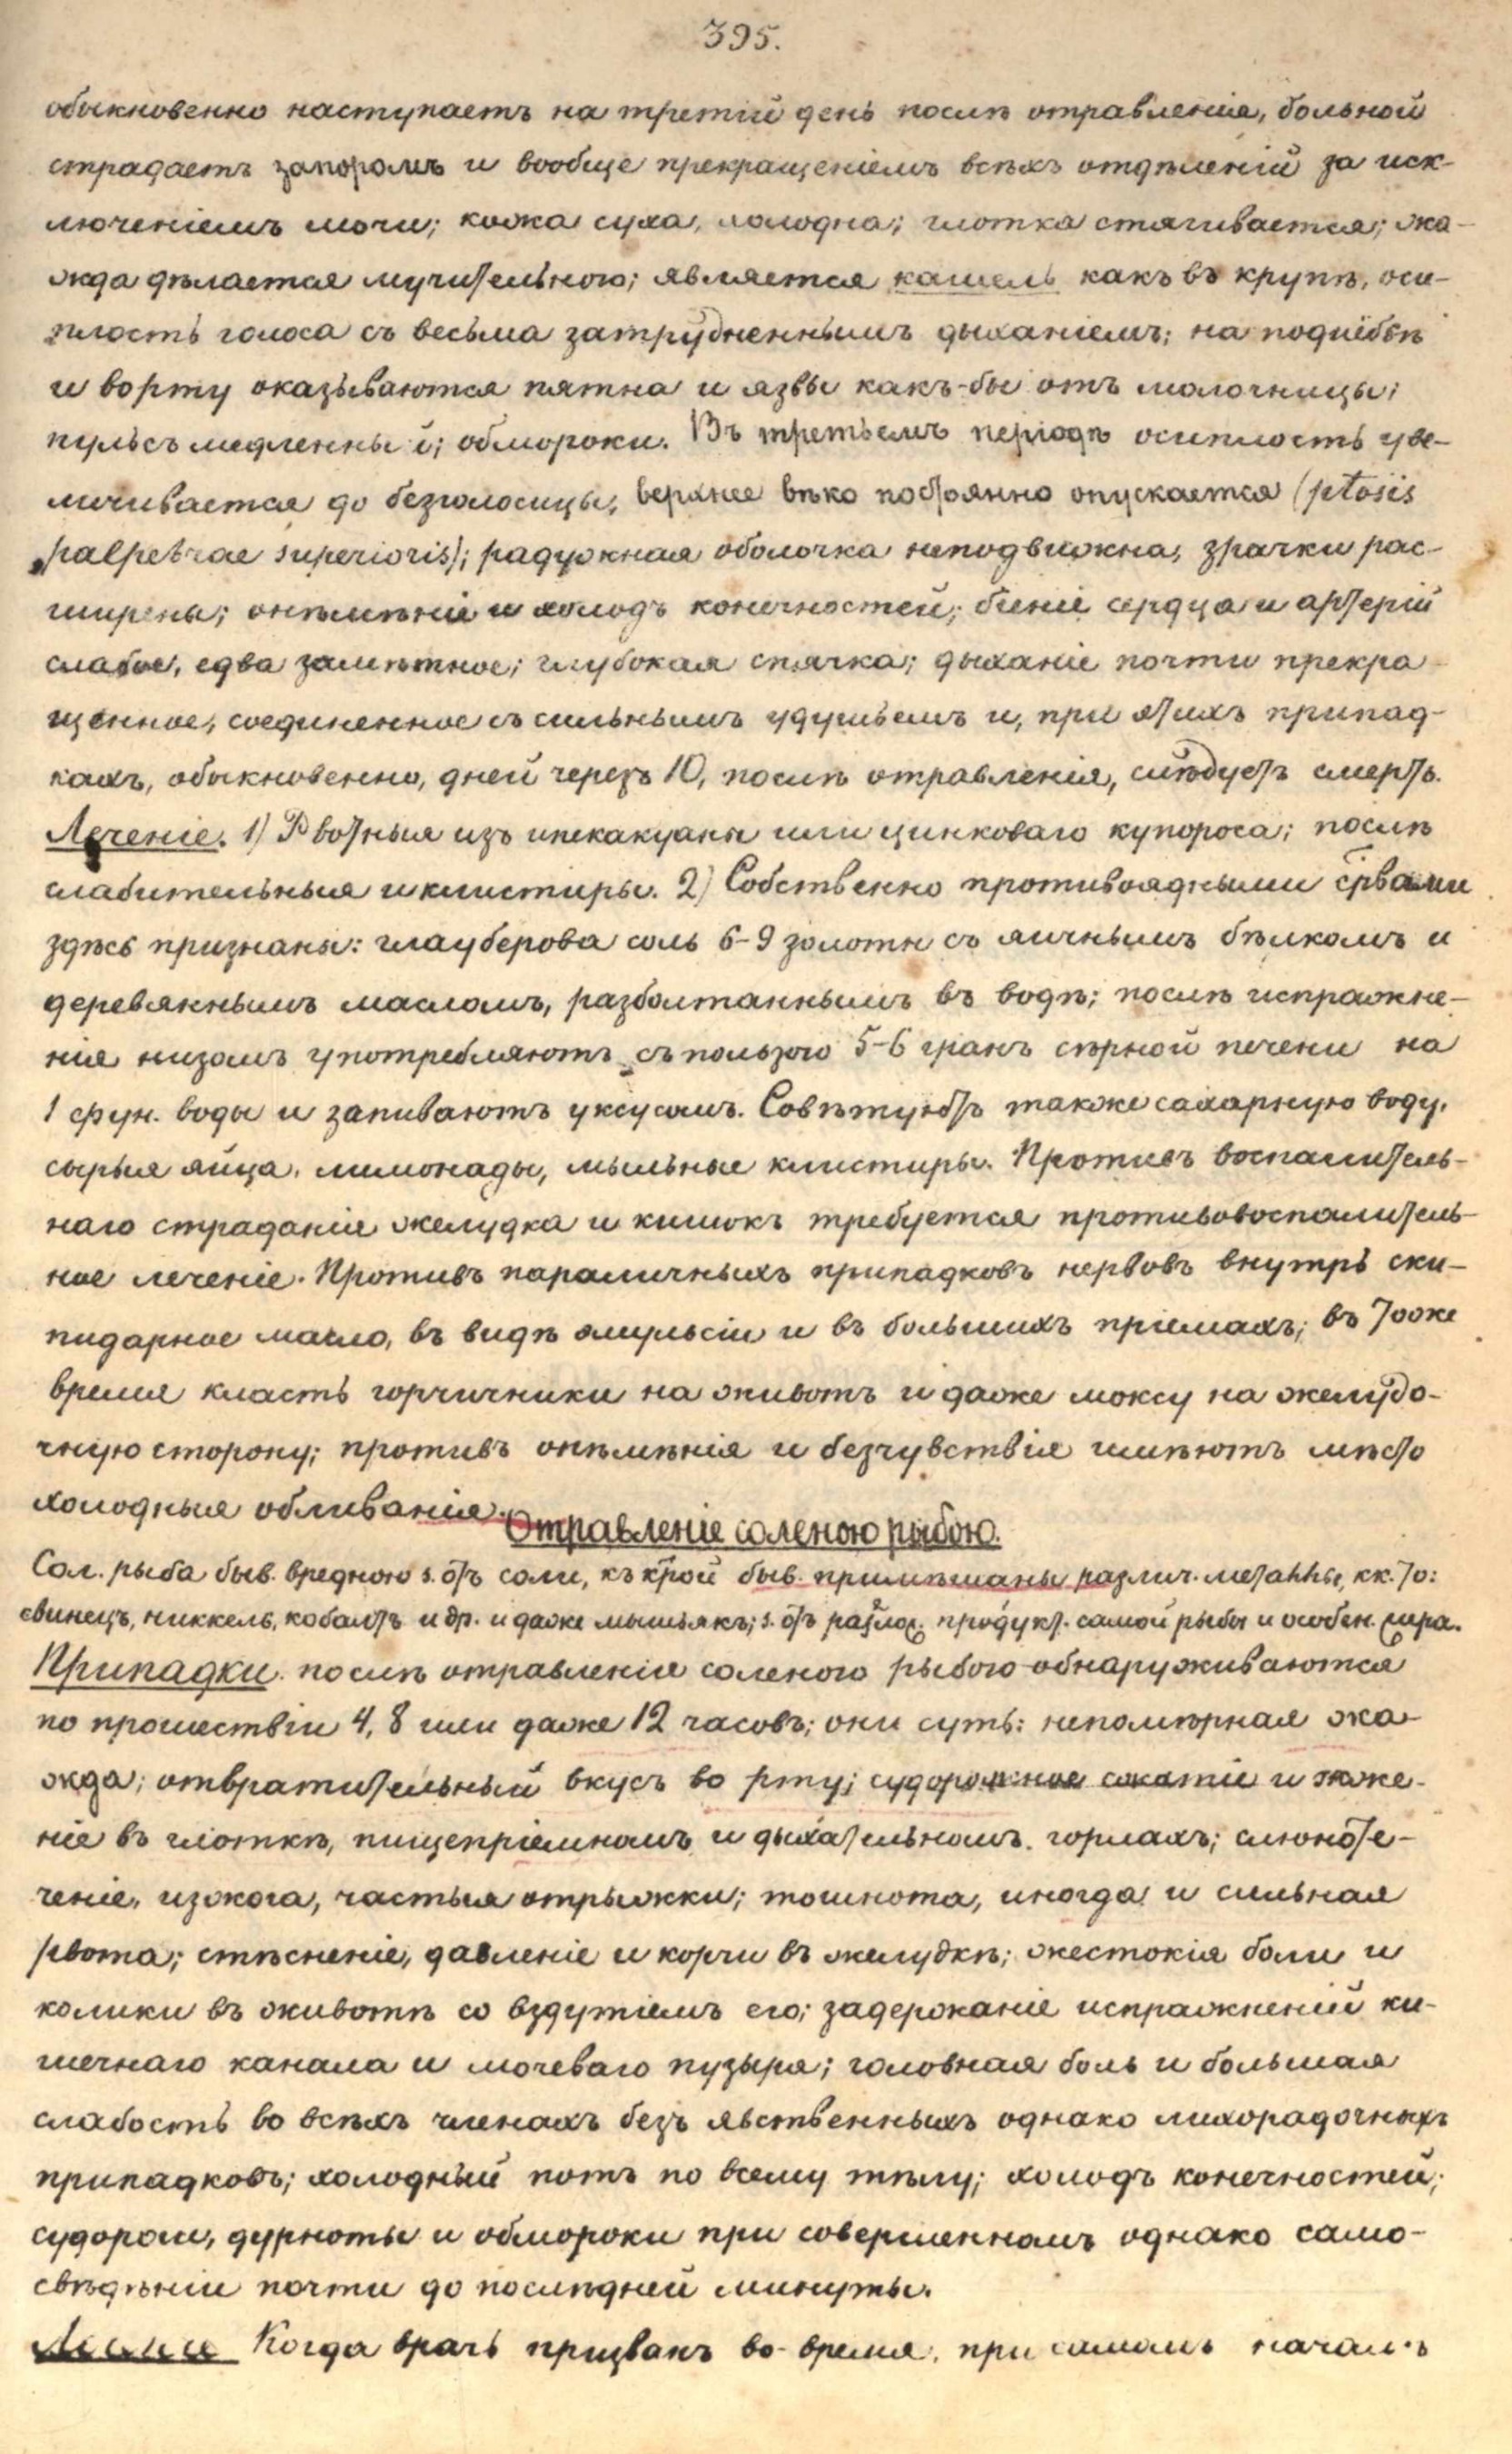 395.
обыкновенно наступаетъ на третій день послѣ отравленія, больной
страдаетъ запоромъ и вообще прекращеніемъ всѣхъ отдѣленій за иск-
люченіемъ мочи; кожа суха, холодна; глотка стягивается; жа-
жда дѣлается мучительною; является кашель какъ въ крупѣ, оси-
плость голоса съ весьма затрудненнымъ дыханіемъ; на поднёбѣ
и во рту оказываются пятна и язвы какъ-бы отъ молочницы;
пульсъ медленный; обмороки. Въ третьемъ періодѣ осиплость уве-
личивается до безголосицы, верхнее вѣко постоянно опускается (ptosis
palpebrae superioris); радужная оболочка неподвижна, зрачки рас-
ширены; онѣмѣніе и холодъ конечностей; біеніе сердца и артерій
слабое, едва замѣтное; глубокая спячка; дыханіе почти прекра-
щенное, соединенное съ сильнымъ удушьемъ и, при этихъ припад-
кахъ, обыкновенно, дней черезъ 10, послѣ отравленія, слѣдуетъ смерть.
Леченіе. 1) Рвотныя изъ ипекакуаны или цинковаго купороса; послѣ
слабительныя и клистиры. 2) Собственно противоядными срвами
здѣсь признаны: глауберова соль 6-9 золотн съ яичнымъ бѣлкомъ и
деревяннымъ масломъ, разболтаннымъ въ водѣ; послѣ испражне-
нія низомъ употребляютъ съ пользою 5-6 гранъ сѣрной печени на
1 фун. воды и запиваютъ уксусомъ. Совѣтуютъ также сахарную воду,
сырыя яйца, лимонады, мыльные клистиры. Противъ воспалитель-
наго страданія желудка и кишокъ требуется противовоспалитель-
ное леченіе. Противъ параличныхъ припадковъ нервовъ внутрь ски-
пидарное масло, въ видѣ эмульсіи и въ большихъ пріемахъ; въ тоже
время класть горчичники на животъ и даже моксу на желудо-
чную сторону; противъ онѣмѣнія и безчувствія имѣютъ мѣсто
холодныя обливанія.
Отравленіе соленою рыбою.
Сол. рыба быв. вредною s. отъ соли, къ крой быв. примѣшаны различ. металлы, кк. то:
свинецъ, никкель, кобалтъ и др. и даже мышьякъ; s. отъ разлож. продукт. самой рыбы и особен. жира.
Припадки послѣ отравленія соленою рыбою обнаруживаются
по прошествіи 4, 8 или даже 12 часовъ; они суть: непомѣрная жа-
жда; отвратительный вкусъ во рту; судорожное сжатіе и жже-
ніе въ глоткѣ, пищепріемномъ и дыхательномъ горлахъ; слюноте-
ченіе, изжога, частыя отрыжки; тошнота, иногда и сильная
рвота; стѣсненіе, давленіе и корчи въ желудкѣ; жестокія боли и
колики въ животѣ со вздутіемъ его; задержаніе испражненій ки-
шечнаго канала и мочеваго пузыря; головная боль и большая
слабость во всѣхъ членахъ безъ явственныхъ однако лихорадочныхъ
припадковъ; холодный потъ по всему тѣлу; холодъ конечностей;
судороги, дурноты и обмороки при совершенномъ однако само-
свѣдѣніи почти до послѣдней минуты.
Когда врачъ призванъ во-время, при самомъ началѣ